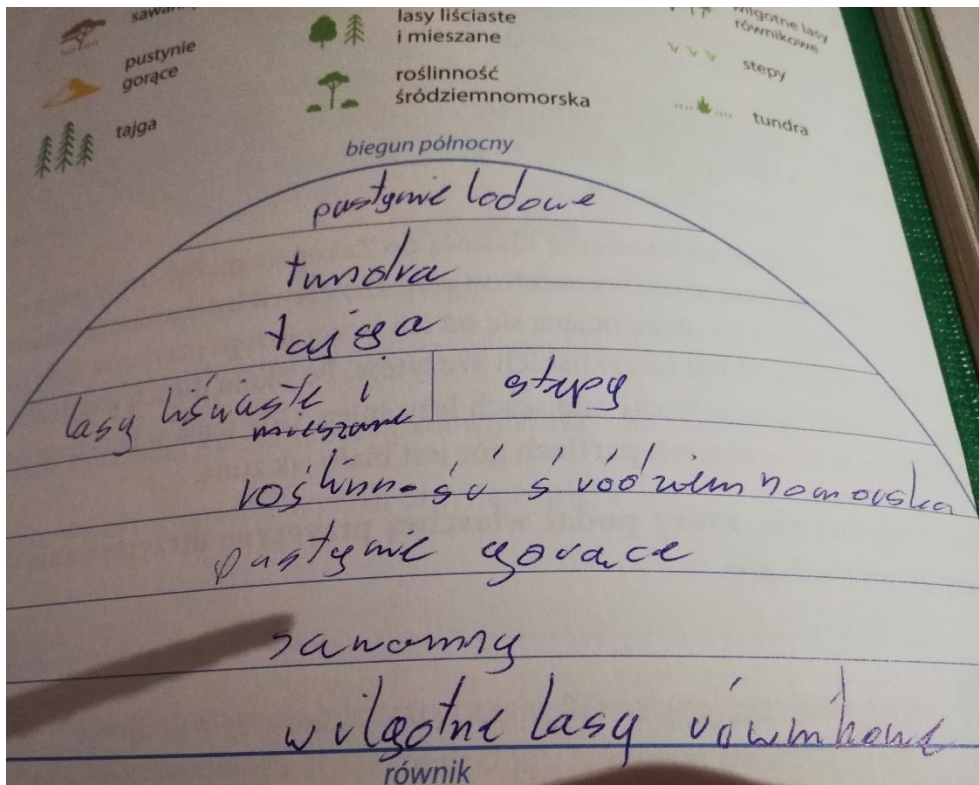 sawanny
pustynie
gorące
tajga
lasy liściaste
i mieszane
roślinność
śródziemnomorska
wilgotne lasy
równikowe
stepy
tundra
biegun północny
pustynie lodowe
tundra
tajga
lasy liściaste i
mieszane
stepy
roślinność śródziemnomorska
pustynie gorące
sawanny
wilgotne lasy równikowe
równik